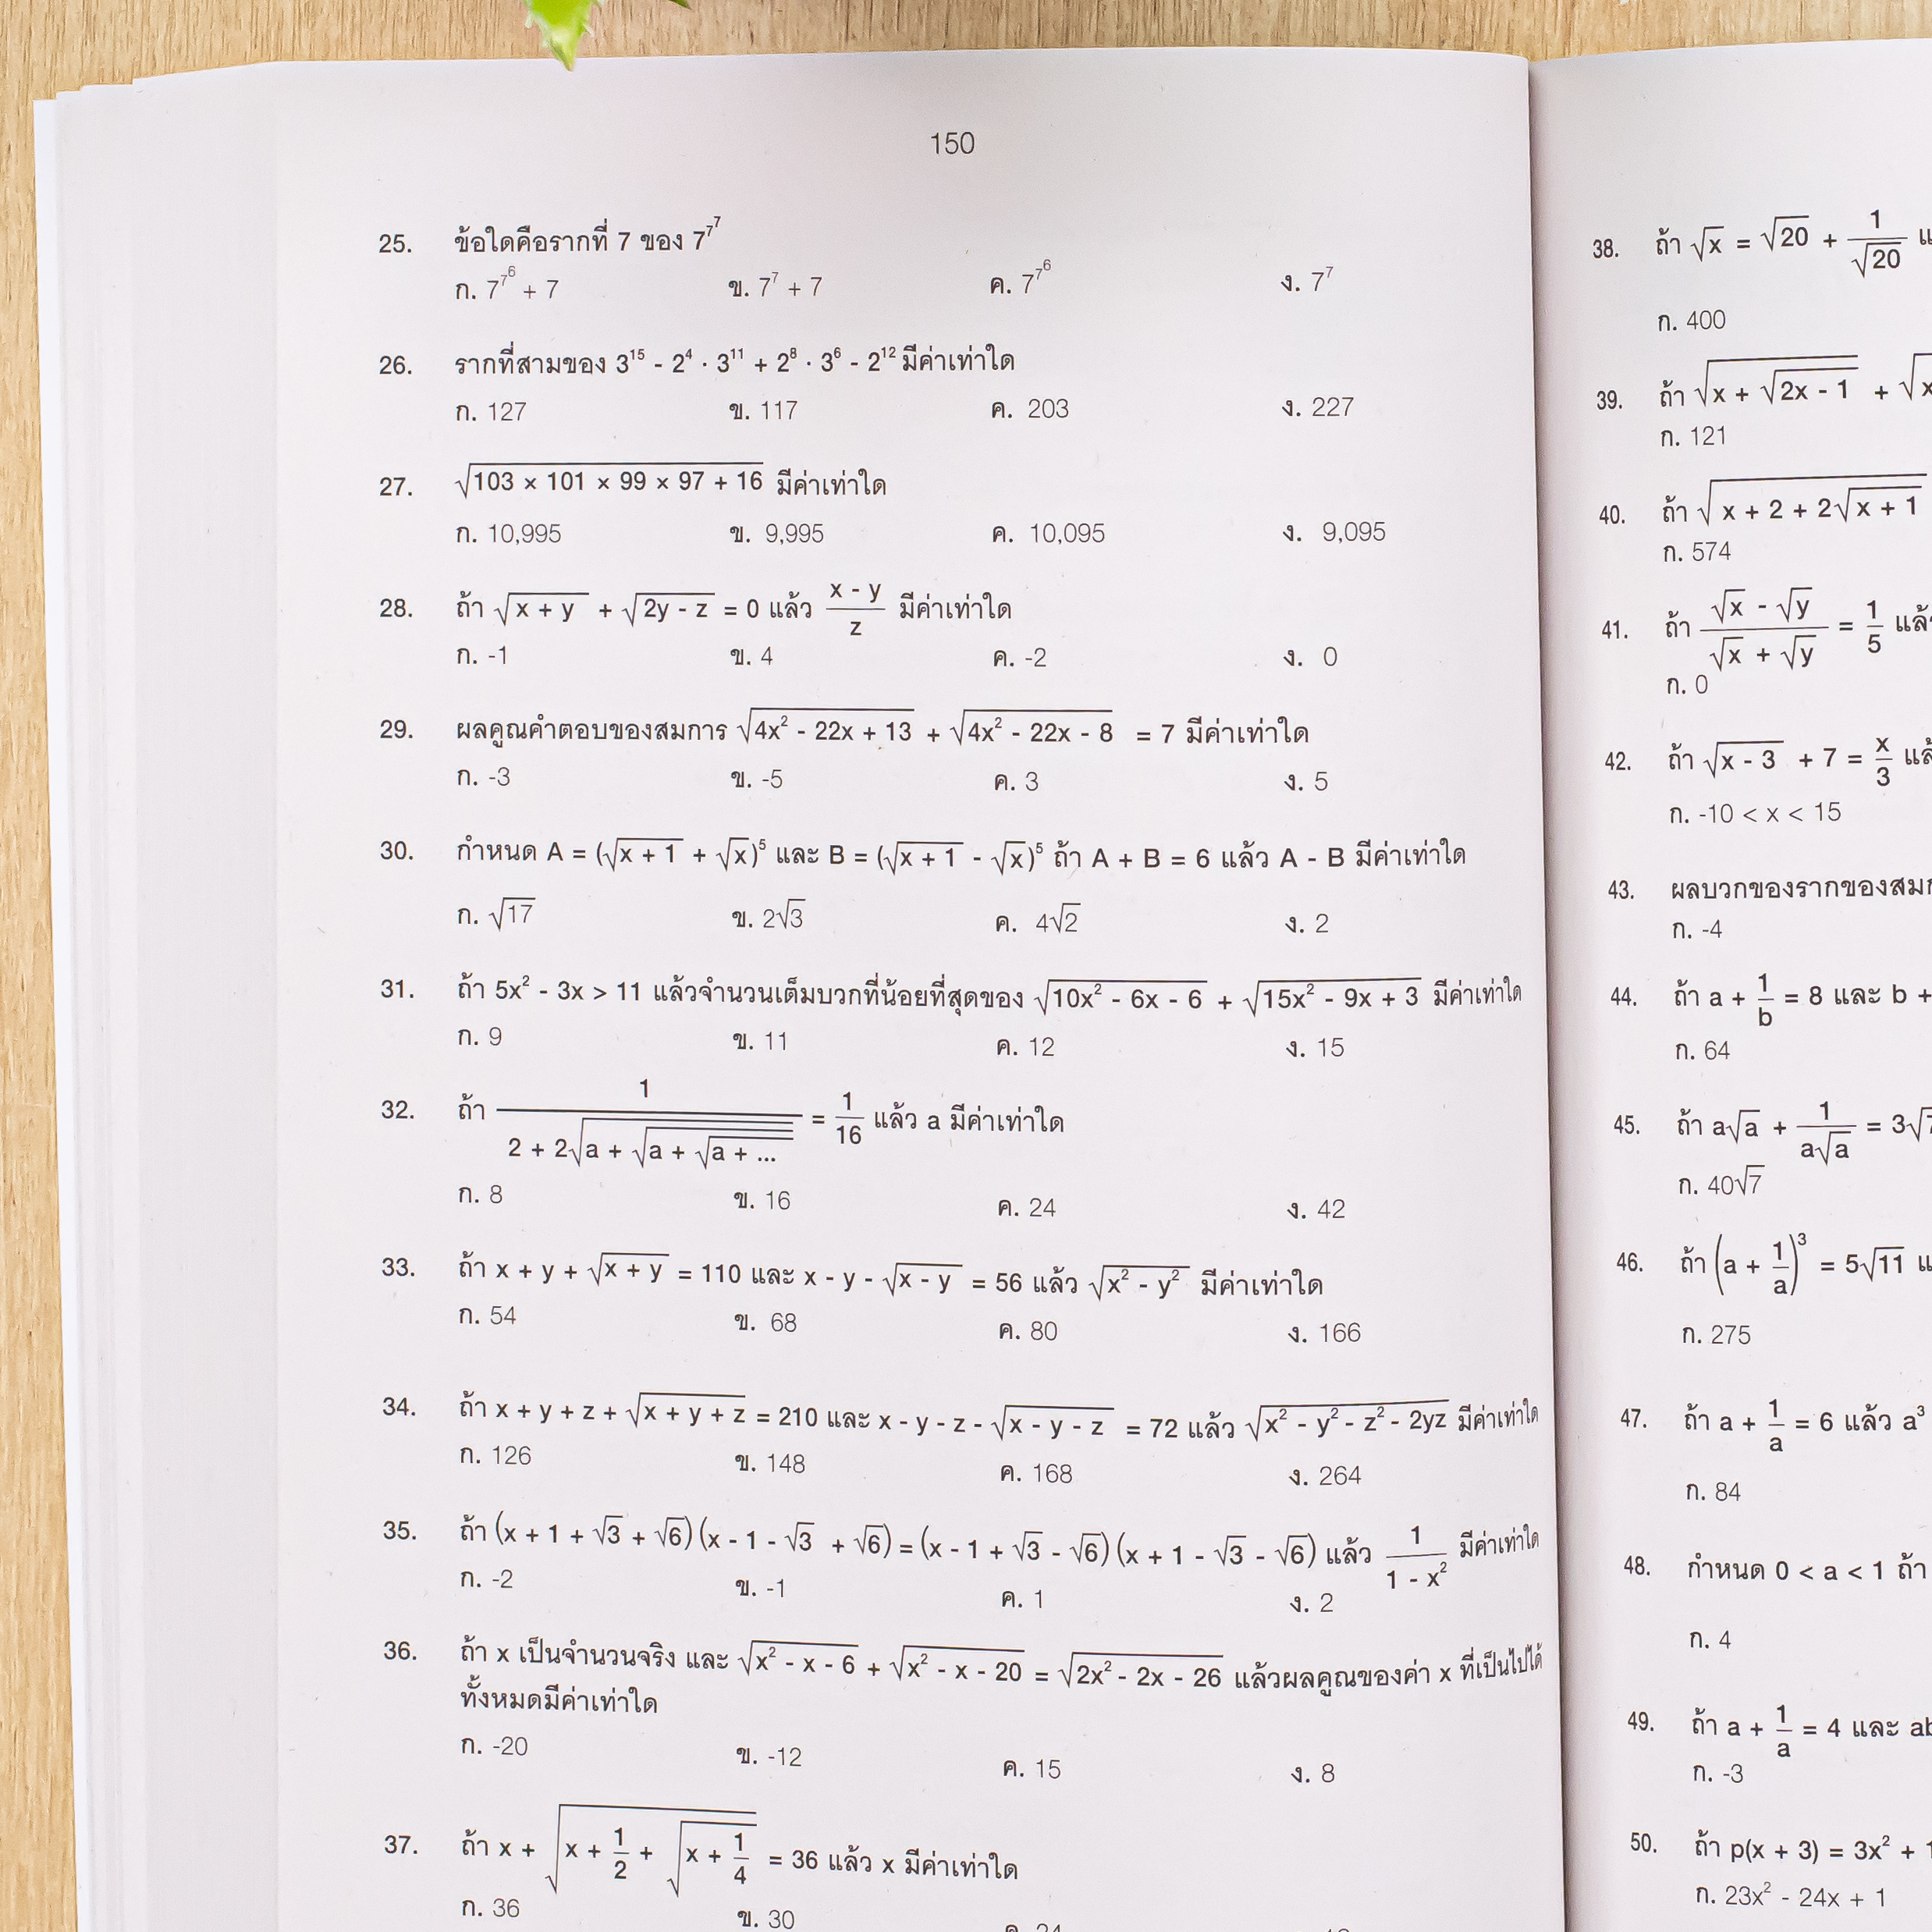 150
25. ข้อใดคือรากที่ 7 ของ 7^7^7
ก. 7^7^6 + 7 ข. 7^7 + 7 ค. 7^7^6 ง. 7^7
26. รากที่สามของ 3^15 - 2^4 · 3^11 + 2^8 · 3^6 - 2^12 มีค่าเท่าใด
ก. 127 ข. 117 ค. 203 ง. 227
27. √(103 × 101 × 99 × 97 + 16) มีค่าเท่าใด
ก. 10,995 ข. 9,995 ค. 10,095 ง. 9,095
28. ถ้า √(x + y) + √(2y - z) = 0 แล้ว (x - y)/z มีค่าเท่าใด
ก. -1 ข. 4 ค. -2 ง. 0
29. ผลคูณคำตอบของสมการ √(4x² - 22x + 13) + √(4x² - 22x - 8) = 7 มีค่าเท่าใด
ก. -3 ข. -5 ค. 3 ง. 5
30. กำหนด A = (√(x + 1) + √x)^5 และ B = (√(x + 1) - √x)^5 ถ้า A + B = 6 แล้ว A - B มีค่าเท่าใด
ก. √17 ข. 2√3 ค. 4√2 ง. 2
31. ถ้า 5x² - 3x > 11 แล้วจำนวนเต็มบวกที่น้อยที่สุดของ √(10x² - 6x - 6) + √(15x² - 9x + 3) มีค่าเท่าใด
ก. 9 ข. 11 ค. 12 ง. 15
32. ถ้า 1/(2 + 2√(a + √(a + √(a + ...)))) = 1/16 แล้ว a มีค่าเท่าใด
ก. 8 ข. 16 ค. 24 ง. 42
33. ถ้า x + y + √(x + y) = 110 และ x - y - √(x - y) = 56 แล้ว √(x² - y²) มีค่าเท่าใด
ก. 54 ข. 68 ค. 80 ง. 166
34. ถ้า x + y + z + √(x + y + z) = 210 และ x - y - z - √(x - y - z) = 72 แล้ว √(x² - y² - z² - 2yz) มีค่าเท่าใด
ก. 126 ข. 148 ค. 168 ง. 264
35. ถ้า (x + 1 + √3 + √6)(x - 1 - √3 + √6) = (x - 1 + √3 - √6)(x + 1 - √3 - √6) แล้ว 1/(1 - x²) มีค่าเท่าใด
ก. -2 ข. -1 ค. 1 ง. 2
36. ถ้า x เป็นจำนวนจริง และ √(x² - x - 6) + √(x² - x - 20) = √(2x² - 2x - 26) แล้วผลคูณของค่า x ที่เป็นไปได้
ทั้งหมดมีค่าเท่าใด
ก. -20 ข. -12 ค. 15 ง. 8
37. ถ้า x + √(x + 1/2 + √(x + 1/4)) = 36 แล้ว x มีค่าเท่าใด
ก. 36 ข. 30
38. ถ้า √x = √20 + 1/√20
ก. 400
39. ถ้า √(x + √(2x - 1)) + √x
ก. 121
40. ถ้า √(x + 2 + 2√(x + 1))
ก. 574
41. ถ้า (√x - √y)/(√x + √y) = 1/5
ก. 0
42. ถ้า √(x - 3) + 7 = x/3
ก. -10 < x < 15
43. ผลบวกของรากของสม
ก. -4
44. ถ้า a + 1/b = 8 และ b +
ก. 64
45. ถ้า a√a + 1/(a√a) = 3√7
ก. 40√7
46. ถ้า (a + 1/a)³ = 5√11
ก. 275
47. ถ้า a + 1/a = 6 แล้ว a³
ก. 84
48. กำหนด 0 < a < 1 ถ้า
ก. 4
49. ถ้า a + 1/a = 4 และ
ก. -3
50. ถ้า p(x + 3) = 3x² +
ก. 23x² - 24x + 1